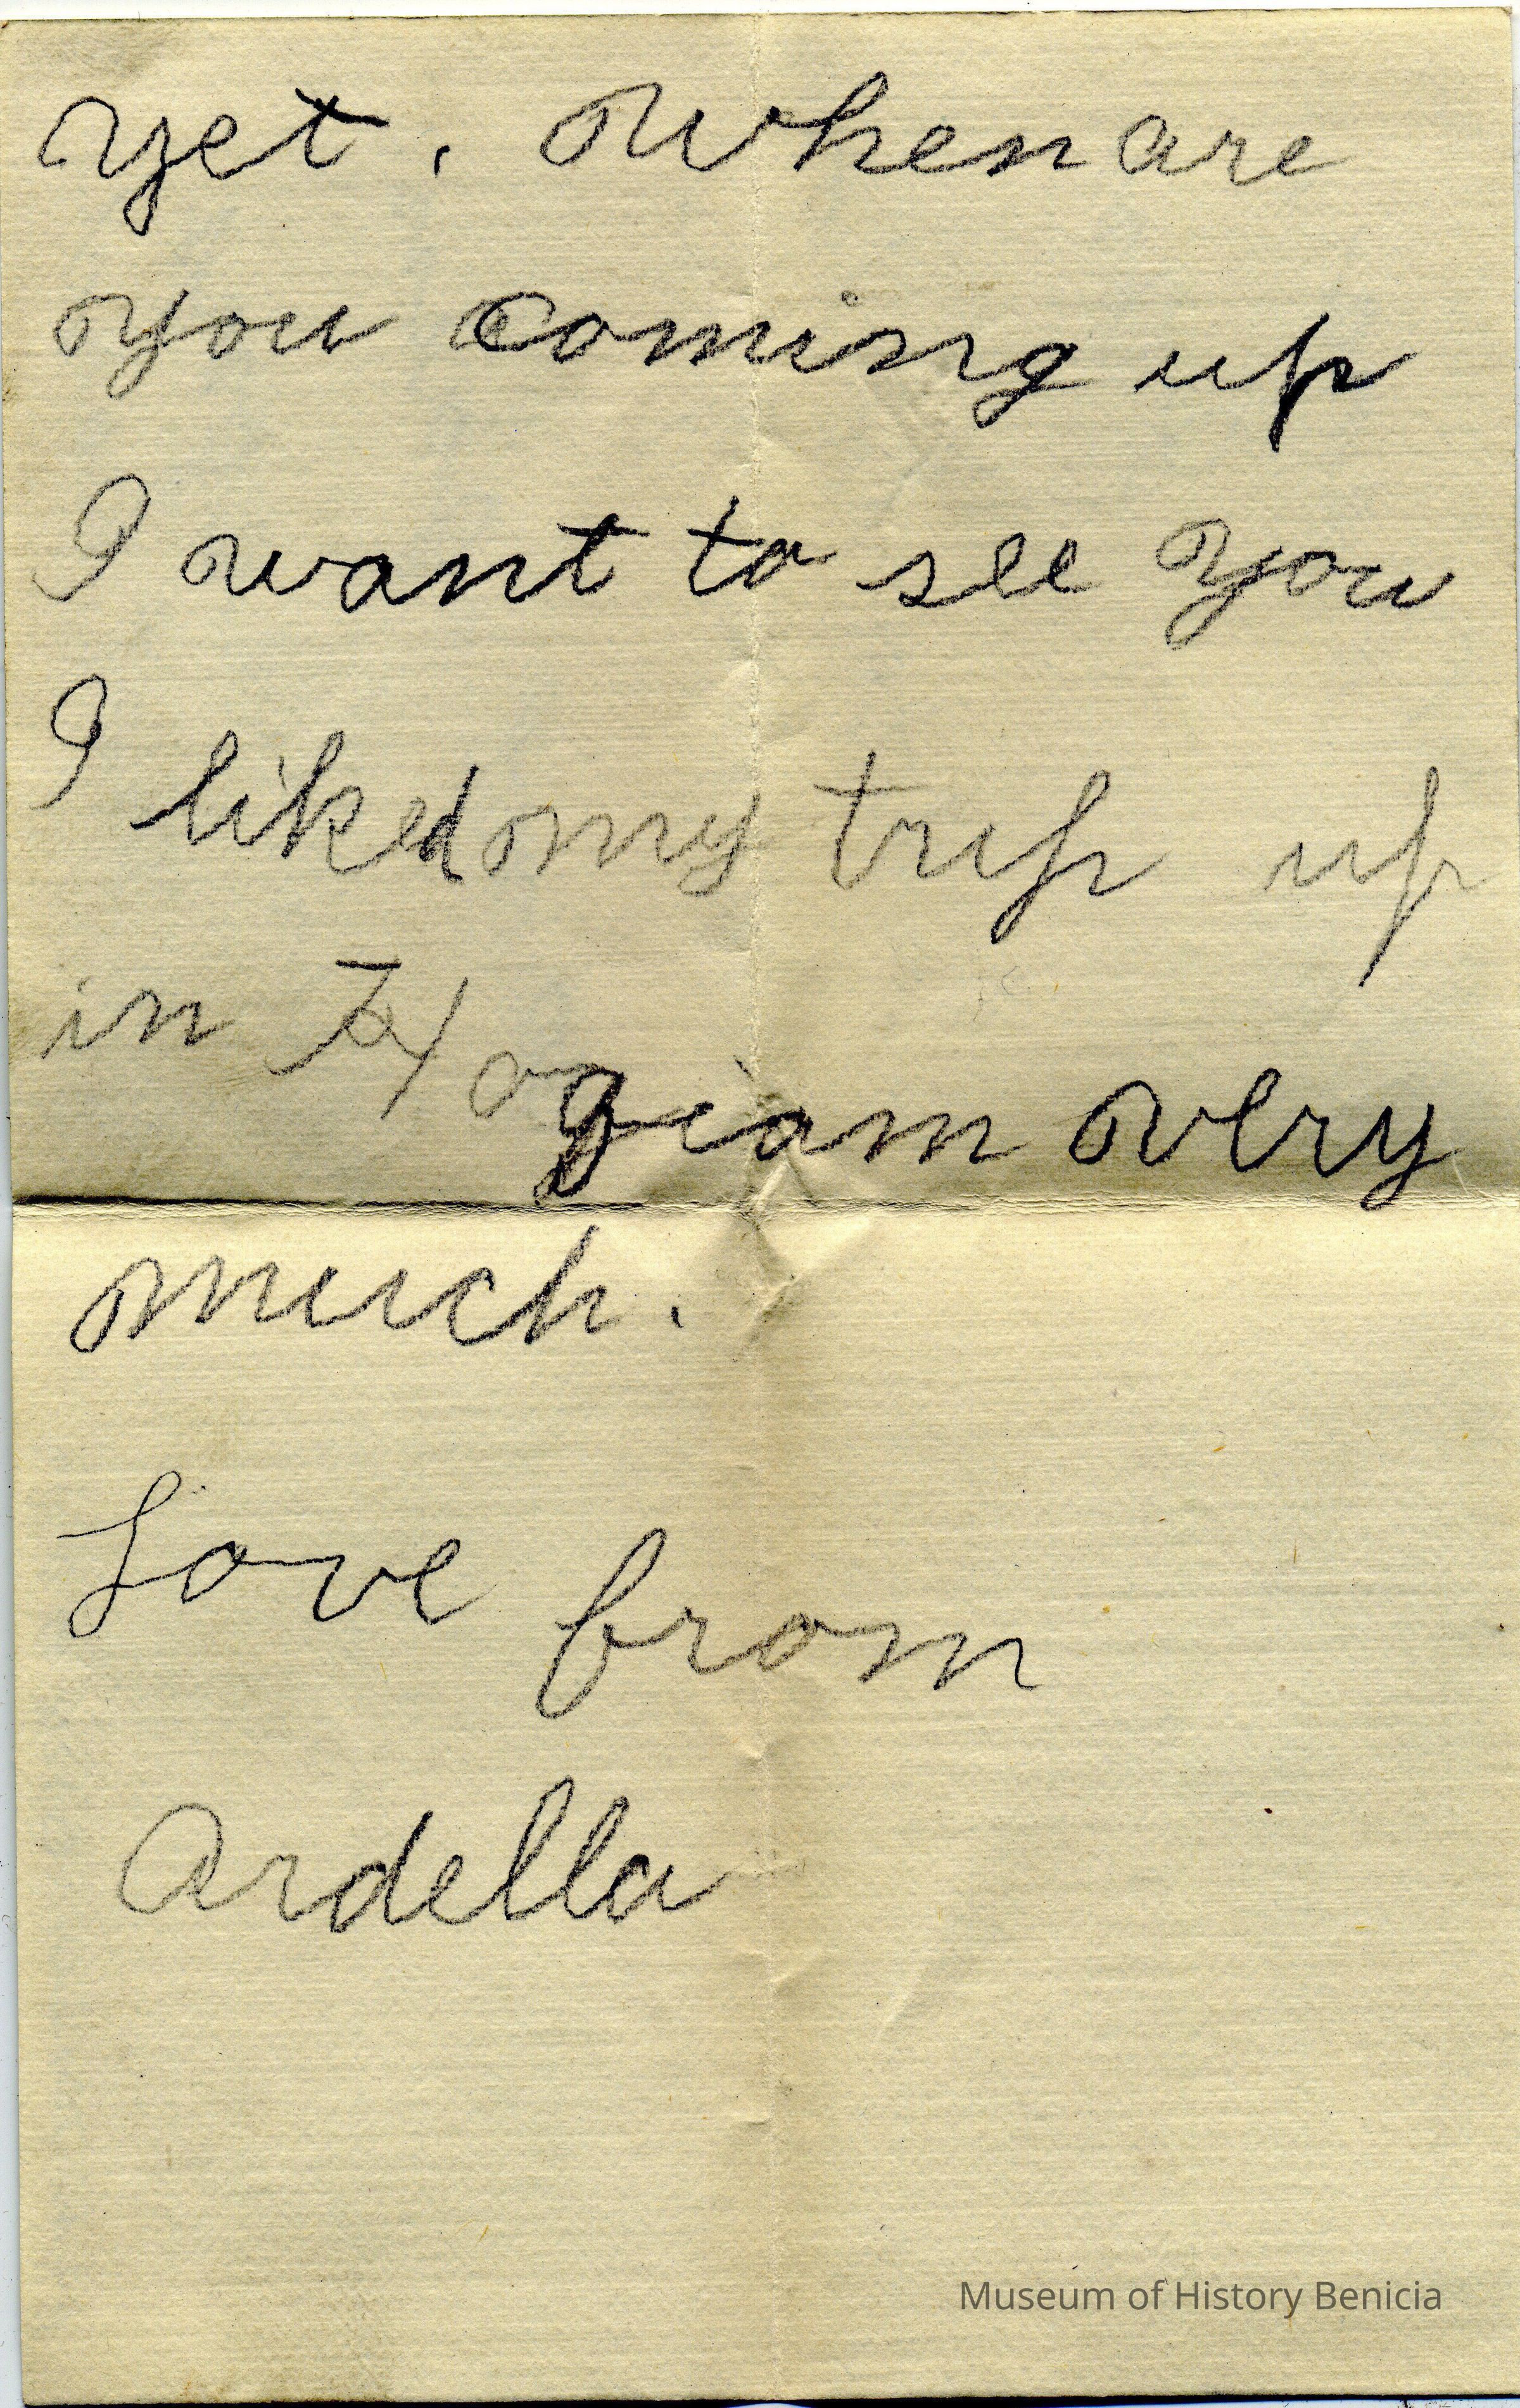 yet. When are
you coming up
I want to see you
I liked my trip up
in Hogiam very
much.
Love from
Ardella
Museum of History Benicia